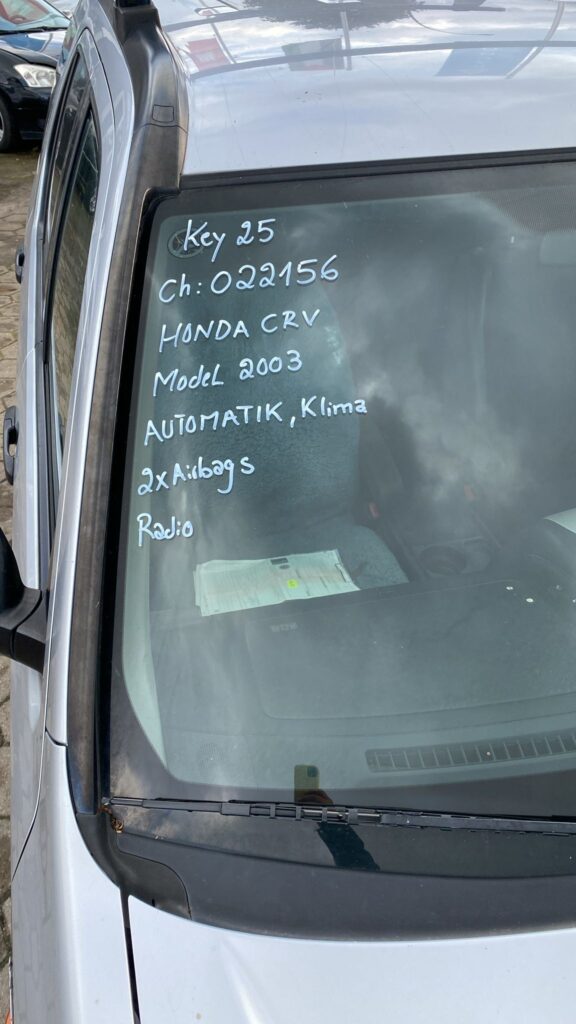 Key 25
Ch: 022156
HONDA CRV
Model 2003
AUTOMATIK, Klima
2xAirbags
Radio